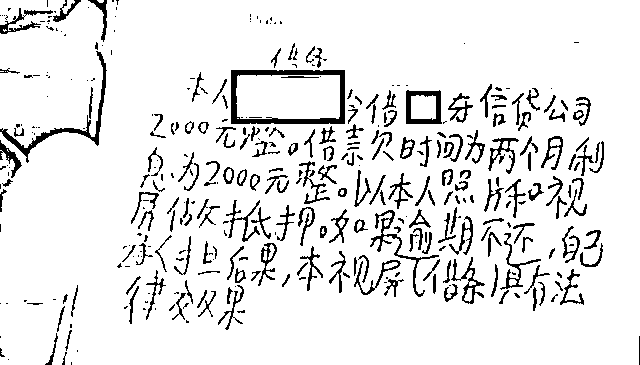 借条
本人 今借 牙信贷公司
2000元整。借款欠时间为两个月利
息为2000元整。以本人照片和视
屏做抵押。如果逾期不还,自己
承担后果,本视屏(借条)具有法
律效果